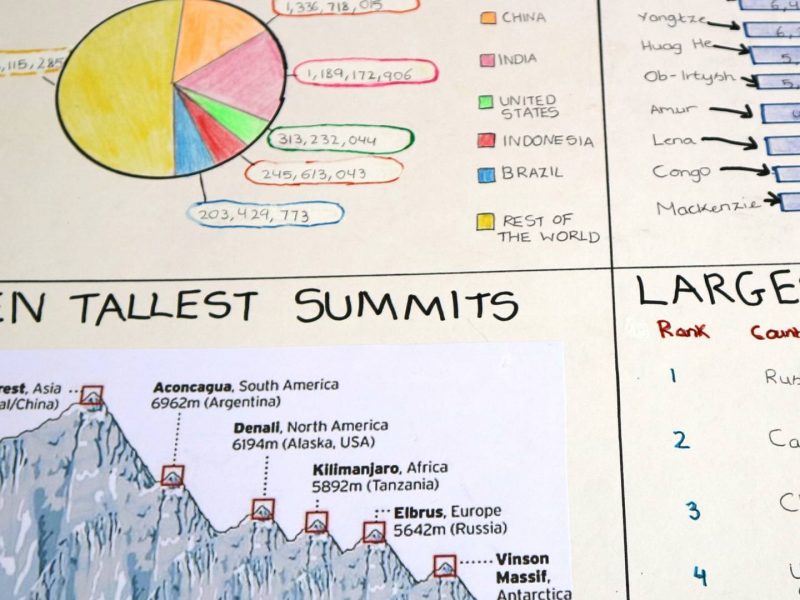 1,336,718,015
115,285
1,189,172,906
313,232,044
245,613,043
203,429,773
CHINA
INDIA
UNITED
STATES
INDONESIA
BRAZIL
REST OF
THE WORLD
Yangtze
Huag He
Ob-Irtysh
Amur
Lena
Congo
Mackenzie
EN TALLEST SUMMITS
rest, Asia
al/China)
Aconcagua, South America
6962m (Argentina)
Denali, North America
6194m (Alaska, USA)
Kilimanjaro, Africa
5892m (Tanzania)
Elbrus, Europe
5642m (Russia)
Vinson
Massif,
Antarctica
LARGES
Rank Count
1 Rus
2 Ca
3 C
4